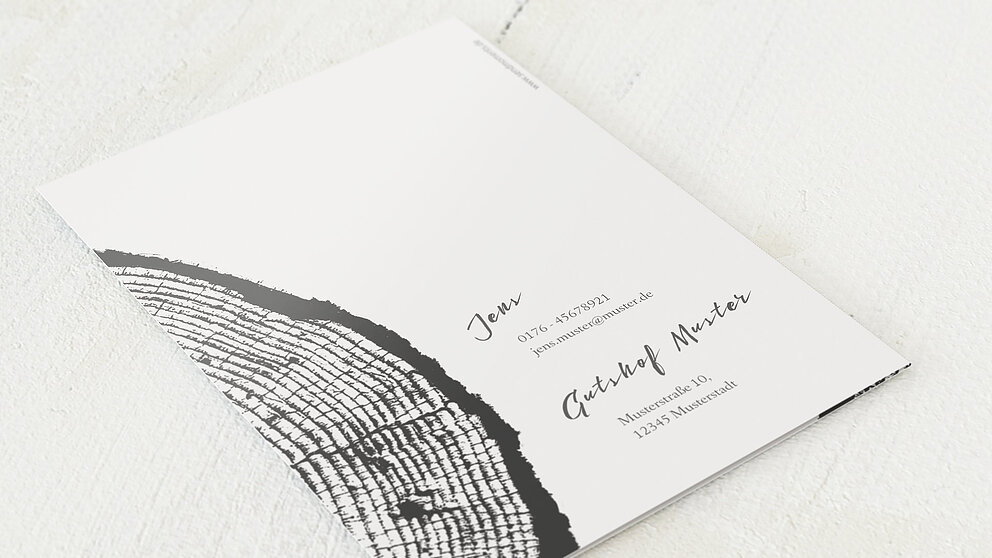 Jens
0176 - 45678921
jens.muster@muster.de
Gutshof Muster
Musterstraße 10,
12345 Musterstadt